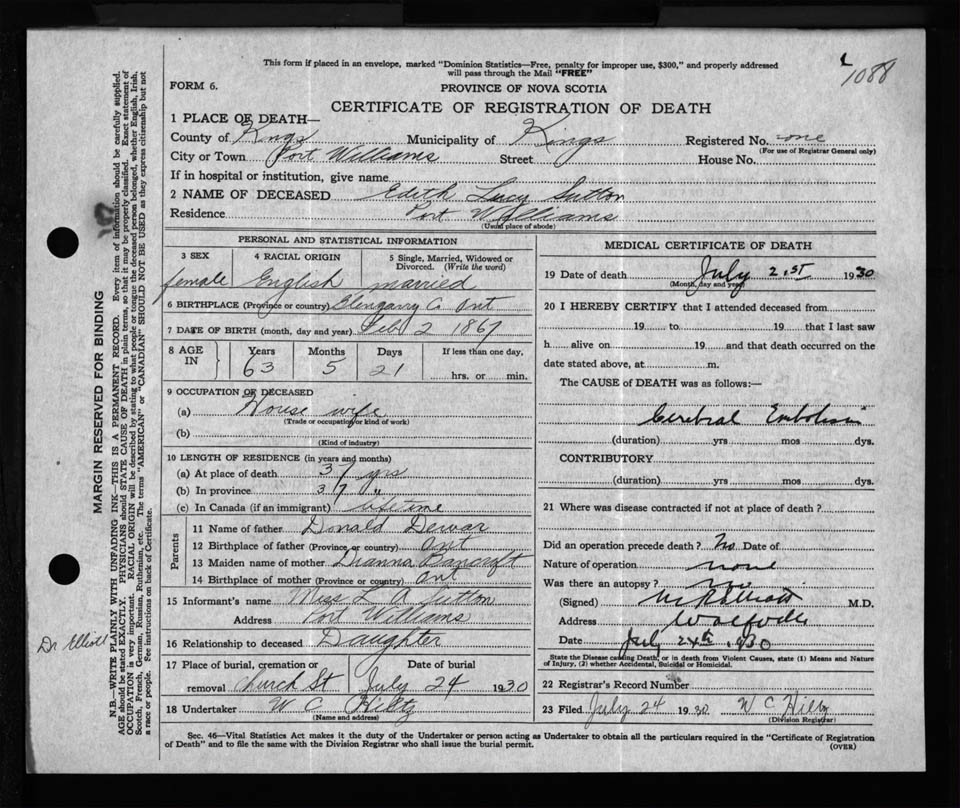 1088
This form if placed in an envelope, marked "Dominion Statistics—Free, penalty for improper use, $300," and properly addressed
will pass through the Mail "FREE"
FORM 6.
PROVINCE OF NOVA SCOTIA
CERTIFICATE OF REGISTRATION OF DEATH
1 PLACE OF DEATH—
County of Kings Municipality of Kings Registered No. one
(For use of Registrar General only)
City or Town Port Williams Street House No.
If in hospital or institution, give name
2 NAME OF DECEASED Edith Lucy Sutton
Residence Port Williams
(Usual place of abode)
PERSONAL AND STATISTICAL INFORMATION
3 SEX 4 RACIAL ORIGIN 5 Single, Married, Widowed or Divorced. (Write the word)
female English married
6 BIRTHPLACE (Province or country) Glengarry C. Ont
7 DATE OF BIRTH (month, day and year) 2 1867
8 AGE IN Years Months Days If less than one day,
63 5 21 hrs. or min.
9 OCCUPATION OF DECEASED
(a) House wife
(Trade or occupation or kind of work)
(b)
(Kind of industry)
10 LENGTH OF RESIDENCE (in years and months)
(a) At place of death 37 yrs
(b) In province 37 "
(c) In Canada (if an immigrant) life time
Parents
11 Name of father Donald Dewar
12 Birthplace of father (Province or country) Ont
13 Maiden name of mother Bancroft
14 Birthplace of mother (Province or country) Ont
15 Informant's name Miss L A Sutton
Address Port Williams
16 Relationship to deceased Daughter
17 Place of burial, cremation or removal Church St Date of burial July 24 1930
18 Undertaker W C Hiltz
(Name and address)
MEDICAL CERTIFICATE OF DEATH
19 Date of death July 21st 1930
(Month, day and year)
20 I HEREBY CERTIFY that I attended deceased from
19 to 19 that I last saw
h alive on 19 and that death occurred on the
date stated above, at m.
The CAUSE of DEATH was as follows:—
Cerebral Embolism
(duration) yrs mos dys.
CONTRIBUTORY
(duration) yrs mos dys.
21 Where was disease contracted if not at place of death?
Did an operation precede death? No Date of
Nature of operation none
Was there an autopsy? no
(Signed) Elliott M.D.
Address Wolfville
Date July 24th 1930
State the Disease causing Death, or in death from Violent Causes, state (1) Means and Nature
of Injury, (2) whether Accidental, Suicidal or Homicidal.
22 Registrar's Record Number
23 Filed July 24 1930 W C Hiltz
(Division Registrar)
Sec. 46—Vital Statistics Act makes it the duty of the Undertaker or person acting as Undertaker to obtain all the particulars required in the "Certificate of Registration
of Death" and to file the same with the Division Registrar who shall issue the burial permit.
(OVER)
MARGIN RESERVED FOR BINDING
N.B.—WRITE PLAINLY WITH UNFADING INK—THIS IS A PERMANENT RECORD. Every item of information should be carefully supplied.
AGE should be stated EXACTLY. PHYSICIANS should STATE CAUSE OF DEATH in plain terms, so that it may be properly classified. Exact statement of
OCCUPATION is very important. RACIAL ORIGIN will be described by stating to what people or tongue the deceased person belonged, whether English, Irish,
Scotch, French, German, Russian, Ruthenian, etc. The terms "AMERICAN" or "CANADIAN" SHOULD NOT BE USED as they express citizenship but not
a race or people. See instructions on back of Certificate.
Dr Elliott